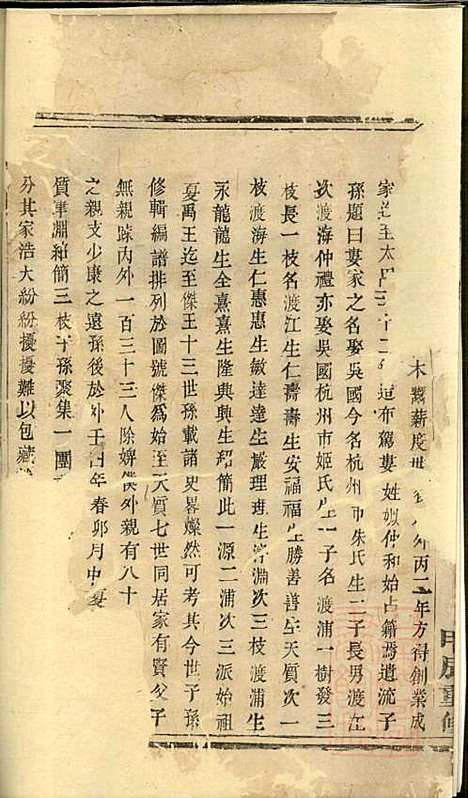 木 薪度 丙二年方得創業成
家 至太 二 道布駕婁 姓姒仲和始占籍焉遺流子
孫題曰婁家之名娶吳國今名杭州市朱氏生二子長男渡江
次渡海仲禮亦娶吳國杭州市姬氏生一子名渡浦一樹發三
枝長一枝名渡江生仁壽壽生安福福生勝善善生天質次一
枝渡海生仁惠惠生敏達達生嚴理理生 淵次三枝渡浦生
永龍龍生全熹熹生隆興興生紹簡此一源二浦次三派始祖
夏禹王迄至傑王十三世孫載諸史畧燦然可考其今世子孫
修輯編譜排列於圖號傑為始至天質七世同居家有賢父子
無親疎內外一百三十三人除婢僕外親有八十
之親支少康之遠孫後於 壬 年春卯月中 
質 淵紹簡三枝子孫聚集一團
分其家浩大紛紛擾擾難以包藏
重修